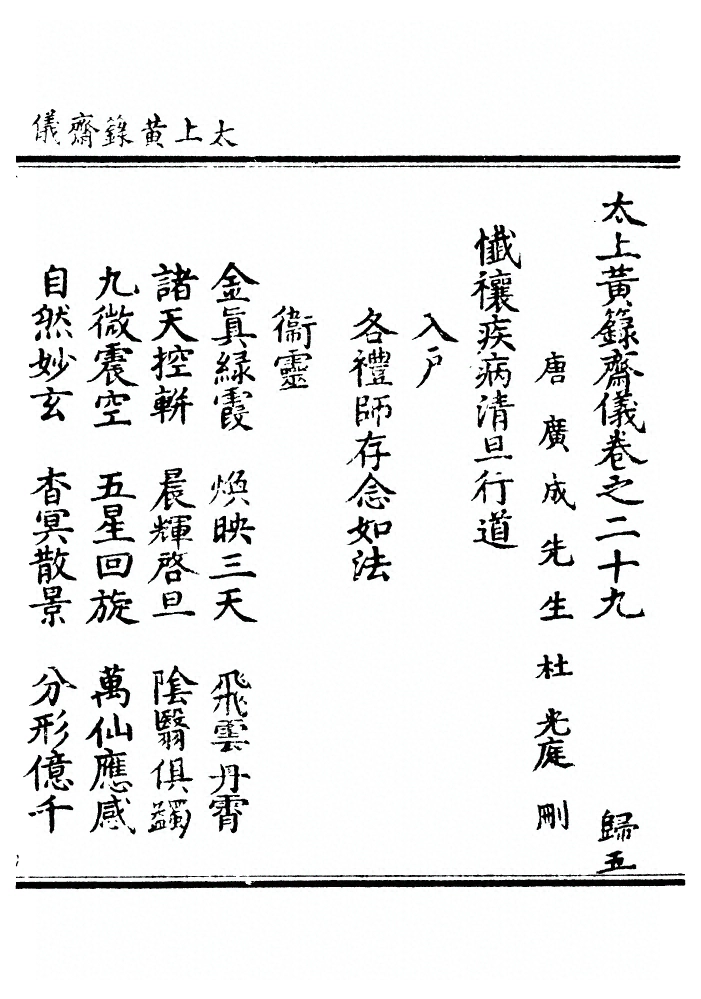 太上黃籙齋儀
太上黃籙齋儀卷之二十九 歸五
唐廣成先生杜光庭刪
懺禳疾病清旦行道
入戶
各禮師存念如法
衞靈
金眞緑霞 煥映三天 飛雲丹霄
諸天控軿 晨輝啓旦 陰翳俱蠲
九微震空 五星回旋 萬仙應感
自然妙玄 杳冥散景 分形億千